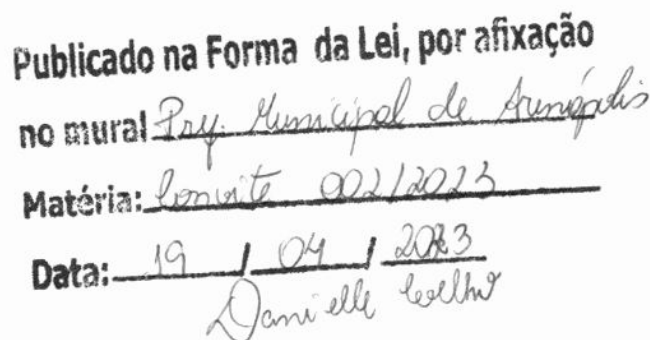 Publicado na Forma da Lei, por afixação
no mural Pref. Municipal de Arenápolis
Matéria: Convite 002/2023
Data: 19 / 04 / 2023
Danielle Coelho